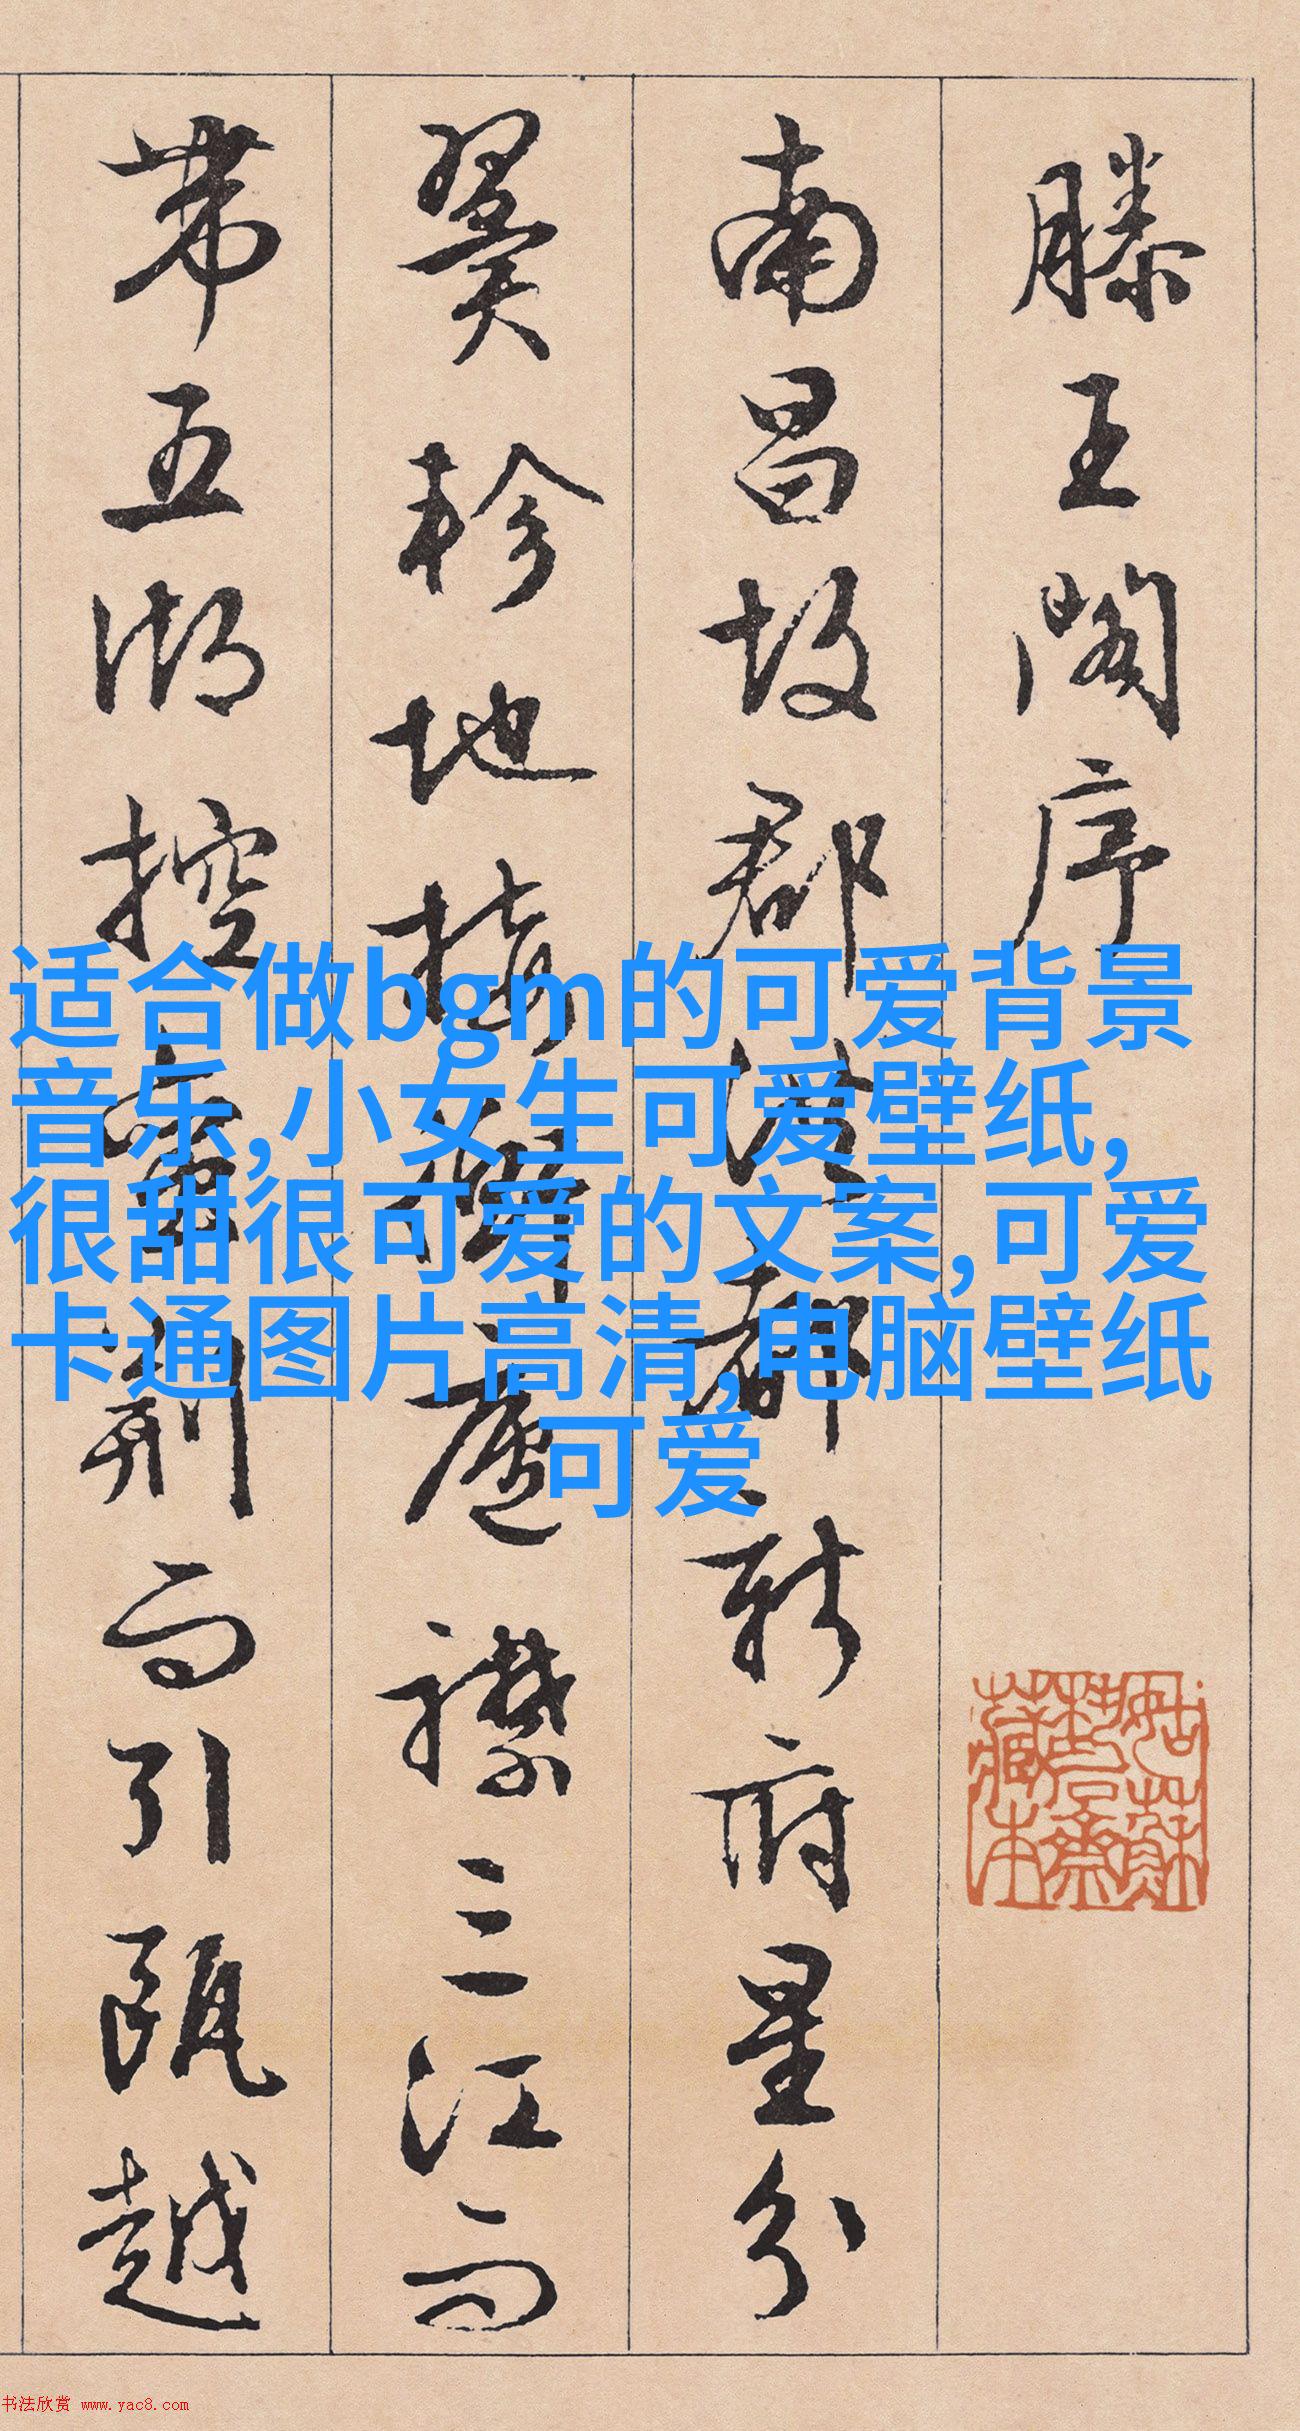 滕王閣序
南昌故郡洪都新府星分
翼軫地接衡廬襟三江而
帶五湖控蠻荊而引甌越
适合做bgm的可爱背景
音乐,小女生可爱壁纸,
很甜很可爱的文案,可爱
卡通图片高清,电脑壁纸
可爱
姑蘇
藏本
书法欣赏 www.yac8.com